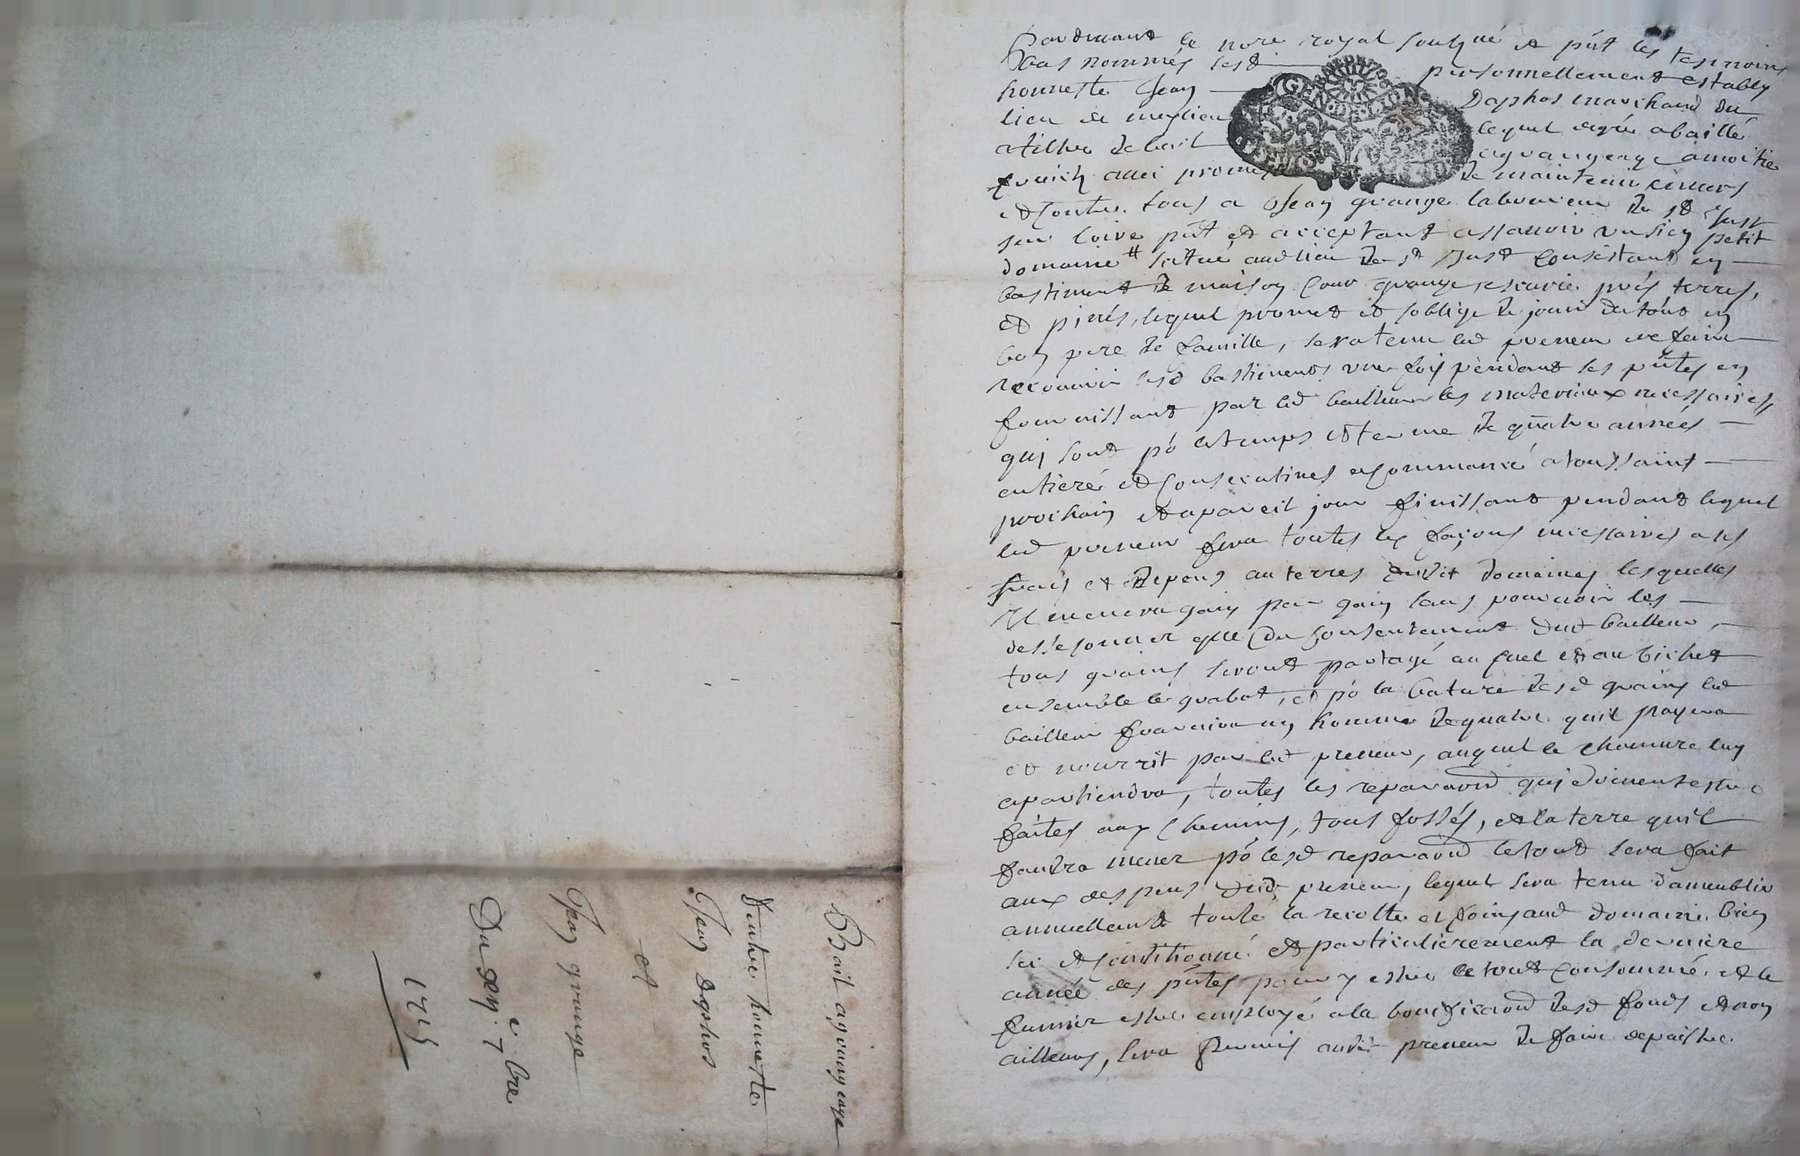 Pardevant le nore royal soubzné et pñt les tesmoins
bas nommés fest personnellement estably
honneste Jean Daphos marchand du
lieu de meylieu lequel degré a baillé
a tiltre de bail agrangeage a moitié
fruich avec promesse de maintenir envers
et contre tous a Jean grange laboureur de st Just
sur loire pñt et acceptant assavoir un sien petit
domaine # scitué aud lieu de st Just consistant en
bastiment de maison cour grange escurie prés terres,
et pinés, lequel promet et soblige de jouir du tout en
bon pere de famille, sera tenu led preneur de faire
recouvrir lesd bastiments une fois pendant les pñtes en
fournissant par led bailleur les materiaux necessaires,
qui sont po le temps et terme de quatre années
entieres et consecutives a commancé a toussaint
prochain et a pareil jour finissant pendant lequel
led preneur fera toutes les façons necessaires a ses
frais et depens au terres dudit domaines lesquelles
Il menera gain par gain sans pouvoir les
dessesonner que du consentement dud bailleur,
tous grains seront partagé au suel et au bichet
ensemble le grabot, et po la bature desd grains led
bailleur fournira un homme de quatre quil payera
et nourrit par led preneur, auquel le chomure luy
apartiendra, toutes les reparaond qui doivent estre
faites aux chemins, tous fossés, et la terre quil
faudra mener po lesd reparaond le tout sera fait
aux despens dud preneur, lequel sera tenu dameublir
annuellemt toute la recolte et foins aud domaine bien
sec et conditionné et particulierement la derniere
année des pñtes pour y estre le tout consommé et le
fumier estre employé a la bonificaond desd fonds et non
ailleurs, sera permis audit preneur de faire depaistre
Bail agrangeage
Dentre honneste
Jean Daphos
et
Jean grange
Du 7e bre
1725